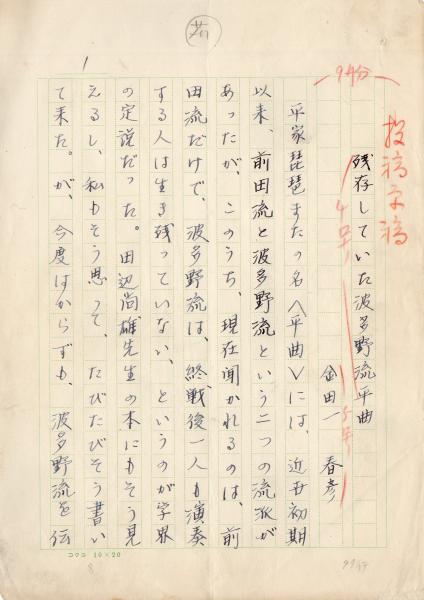 投稿原稿
残存していた波多野流平曲
4号 5号
金田一 春彦
平家琵琶またの名〈平曲〉には、近世初期
以来、前田流と波多野流という二つの流派が
あったが、このうち、現在聞かれるのは、前
田流だけで、波多野流は、終戦後一人も演奏
する人は生き残っていない、というのが学界
の定説だった。田辺尚雄先生の本にもそう見
えるし、私もそう思って、たびたびそう書い
て来た。が、今度はからずも、波多野流を伝
1
コクヨ 10×20